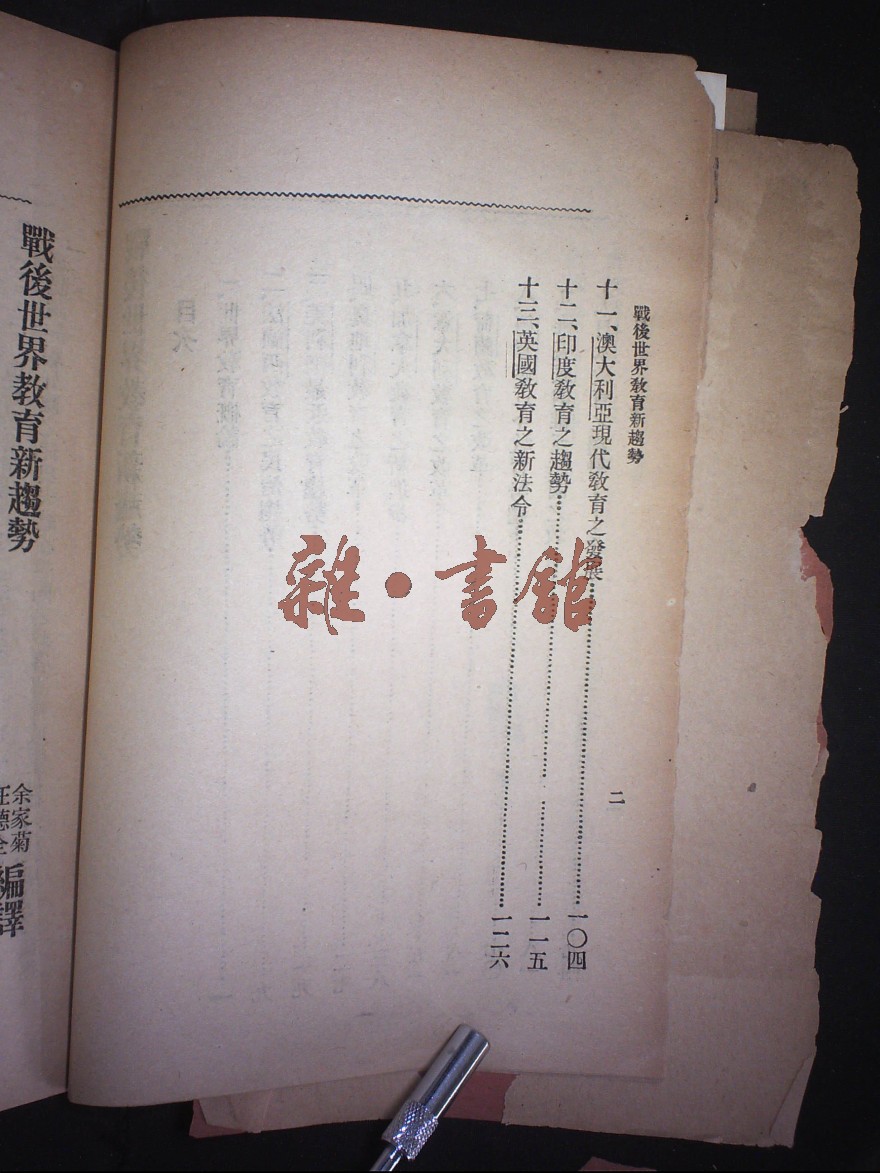 戰後世界敎育新趨勢
二
十一、澳大利亞現代敎育之發展……一〇四
十二、印度敎育之趨勢……一一五
十三、英國敎育之新法令……一二六
戰後世界敎育新趨勢
余家菊
汪德全
編譯
雜·書館